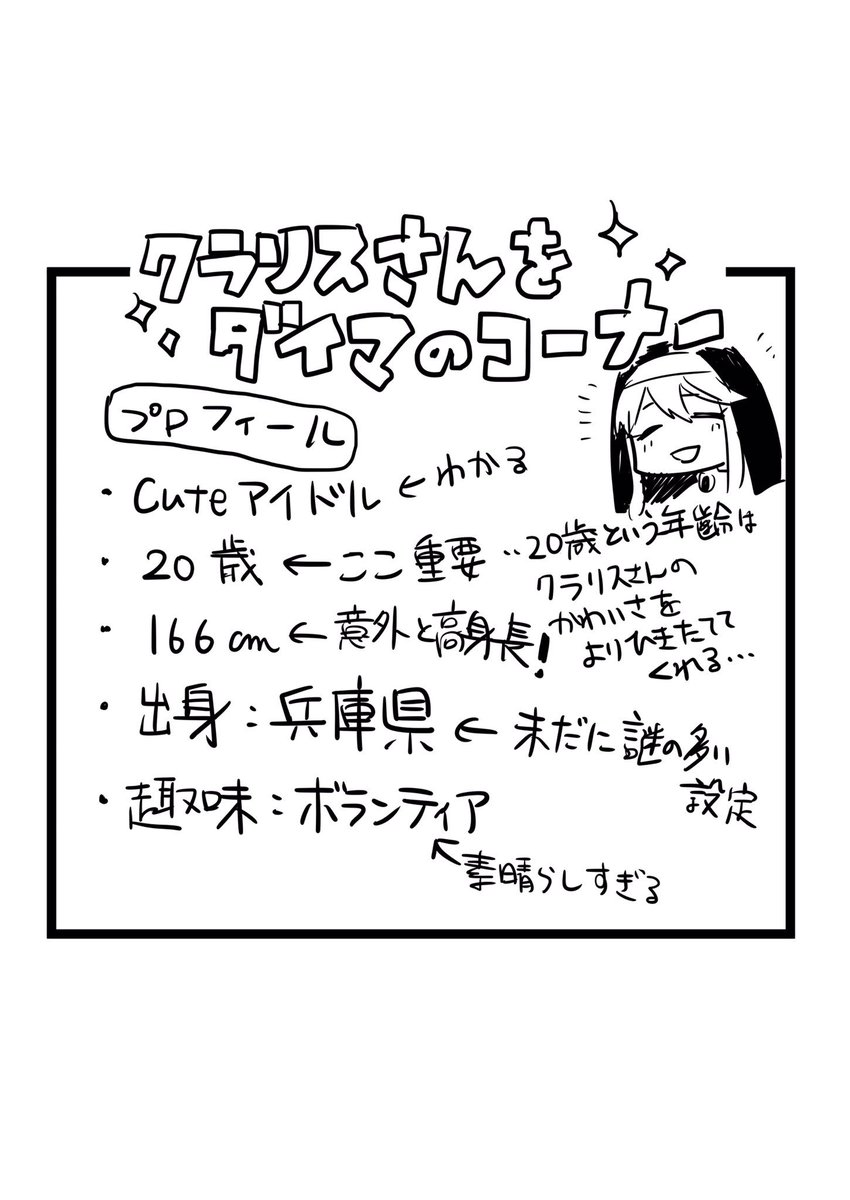 クラリスさんを
ダイマのコーナー
プPフィール
・Cuteアイドル ←わかる
・20歳 ←ここ重要 ‥20歳という年齢は
クラリスさんの
かわいさを
よりひきたてて
くれる…
・166cm ←意外と高身長!
・出身:兵庫県 ←未だに謎の多い
設定
・趣味:ボランティア
←素晴らしすぎる